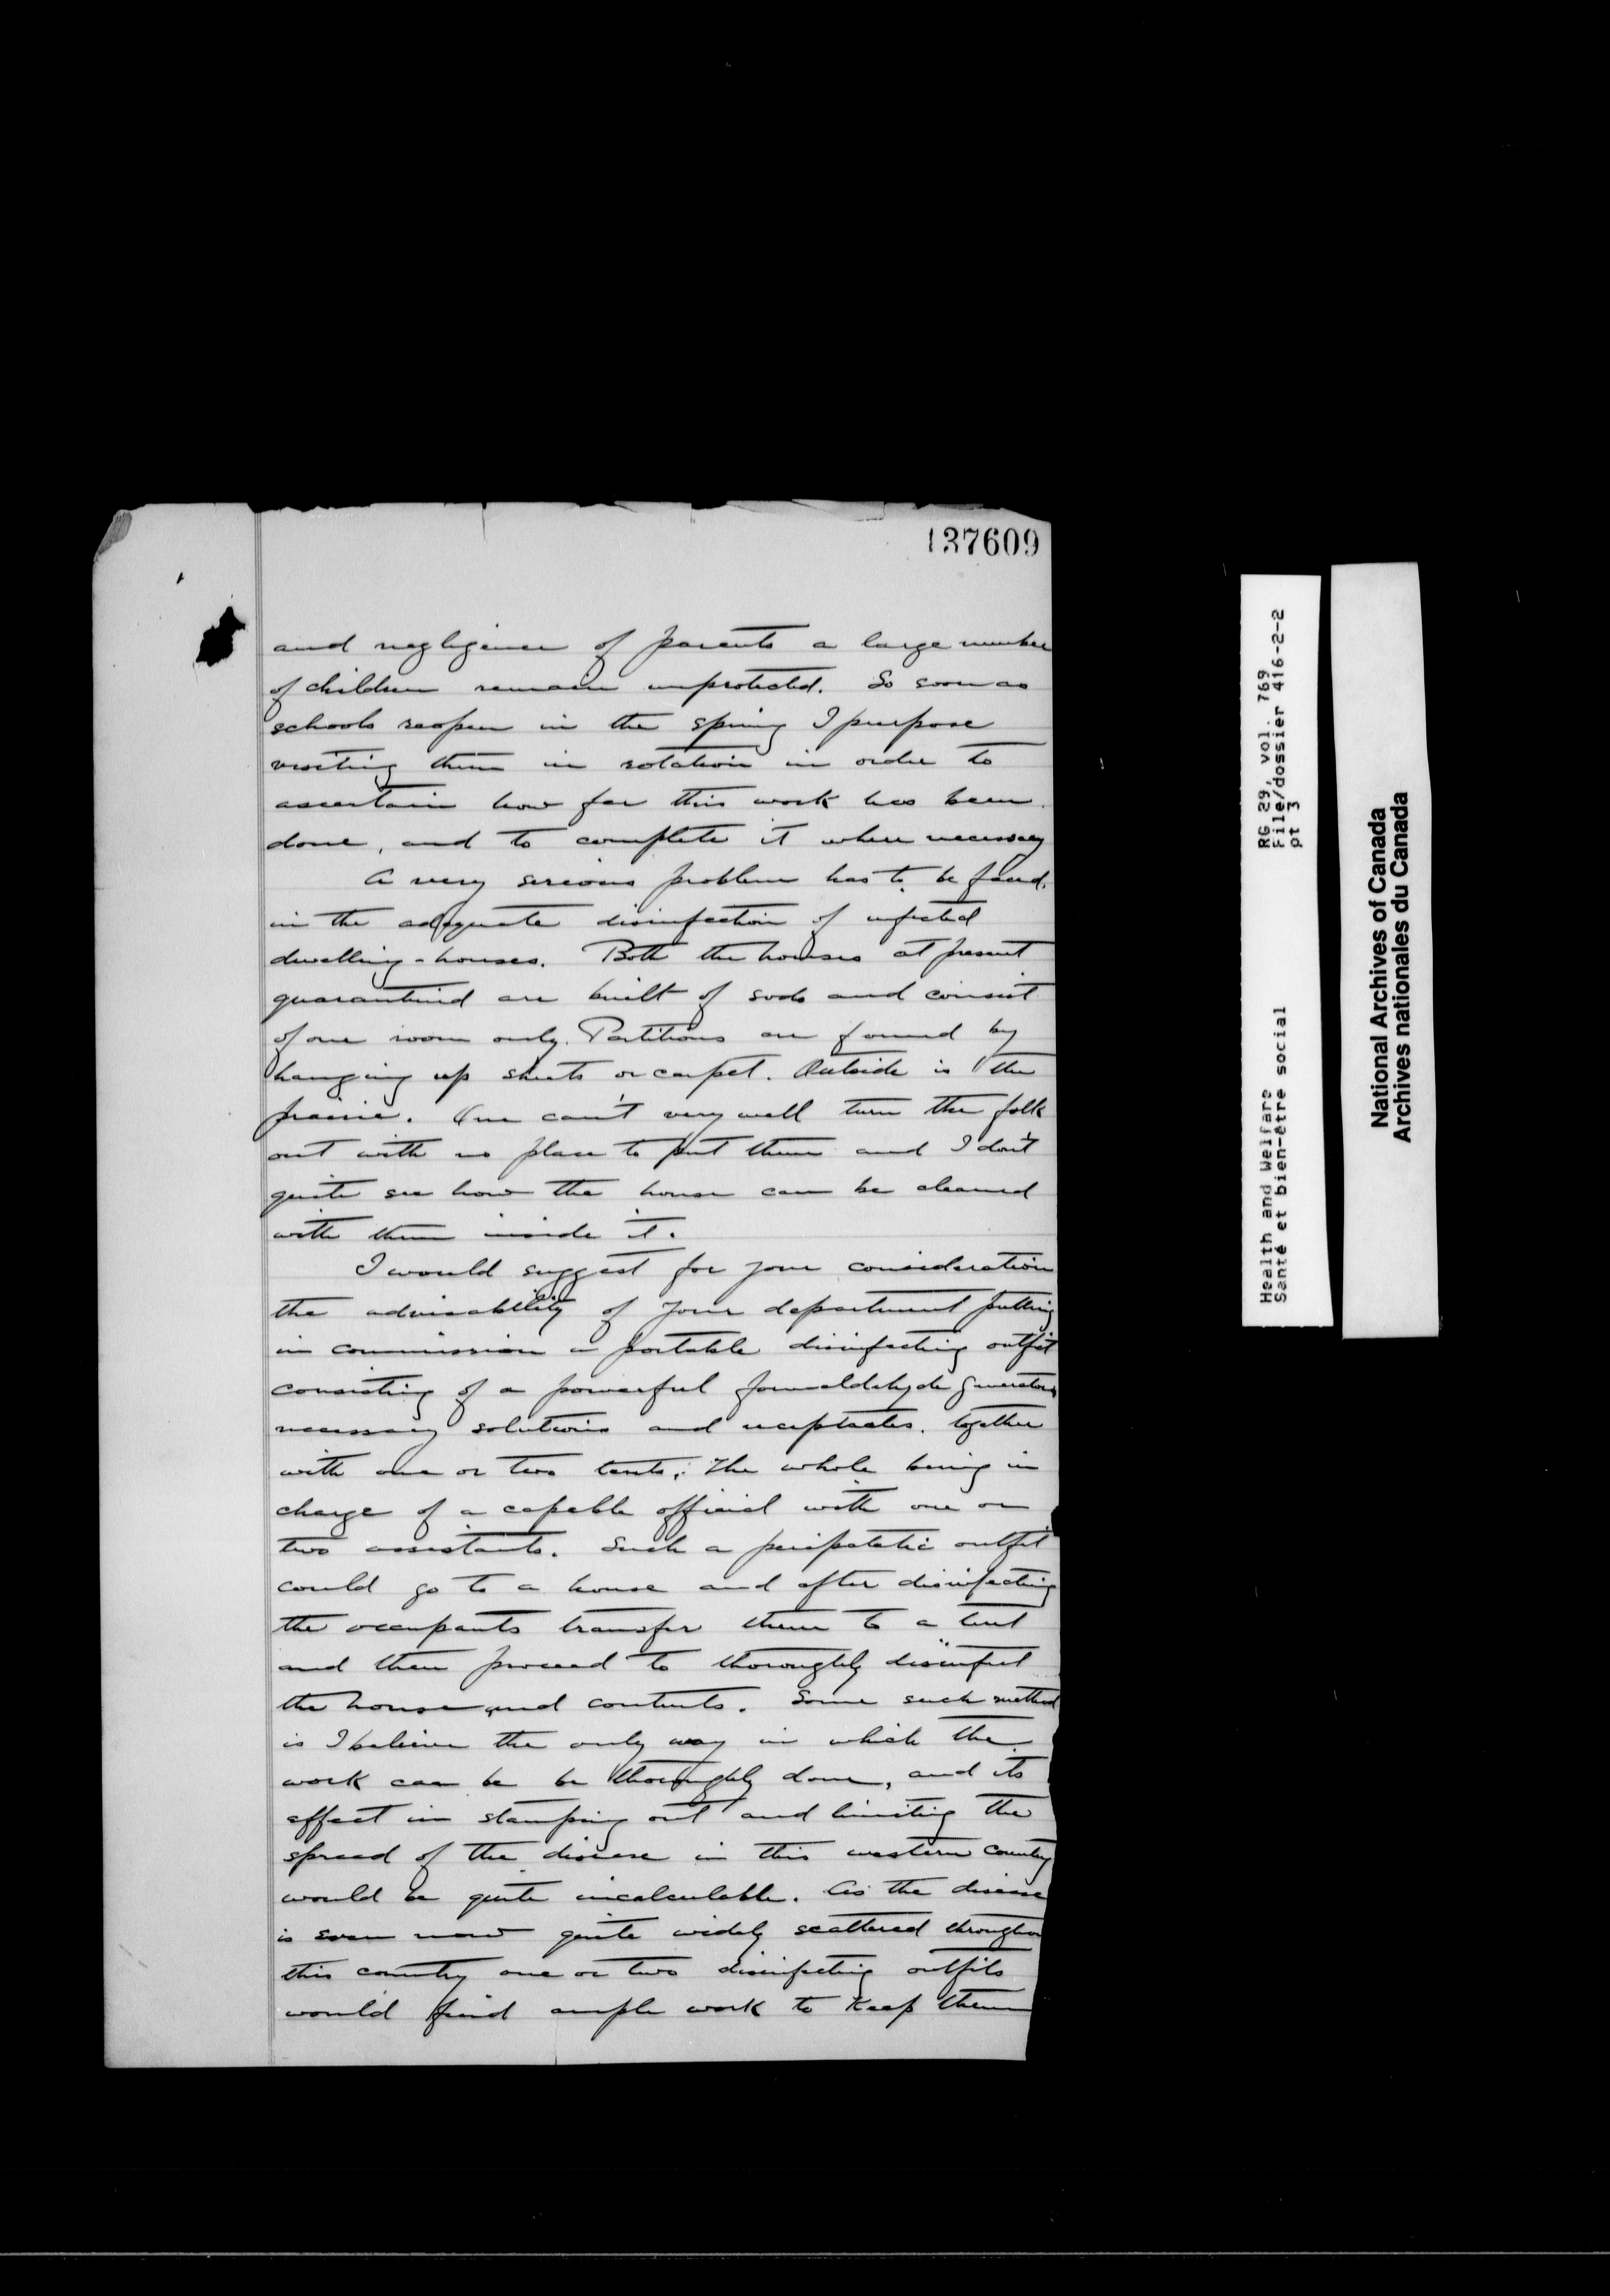 137609
and negligence of parents a large number
of children remain unprotected. So soon as
schools reopen in the spring I purpose
visiting them in rotation in order to
ascertain how far this work has been
done, and to complete it where necessary
A very serious problem has to be faced.
in the adequate disinfection of infected
dwelling-houses. Both the houses at present
quarantined are built of sods and consist
of one room only. Partitions are formed by
hanging up sheets or carpet. Outside is the
prairie. One can't very well turn the folk
out with no place to put them and I don't
quite see how the house can be cleaned
with them inside it.
I would suggest for your consideration
the advisability of your department putting
in commission a portable disinfecting outfit
consisting of a powerful formaldehyde generator,
necessary solutions and receptacles. together
with one or two tents; the whole being in
charge of a capable official with one or
two assistants. Such a peripatetic outfit
could go to a house and after disinfecting
the occupants transfer them to a tent
and then proceed to thoroughly disinfect
the house and contents. Some such method
is I believe the only way in which the
work can be be thoroughly done, and its
effect in stamping out and limiting the
spread of the disease in this western country
would be quite incalculable. As the disease
is even now quite widely scattered throughou
this country one or two disinfecting outfits
would find ample work to keep them
Health and Welfare
Santé et bien-être social
RG 29, vol. 769
File/dossier 416-2-2
pt 3
National Archives of Canada
Archives nationales du Canada